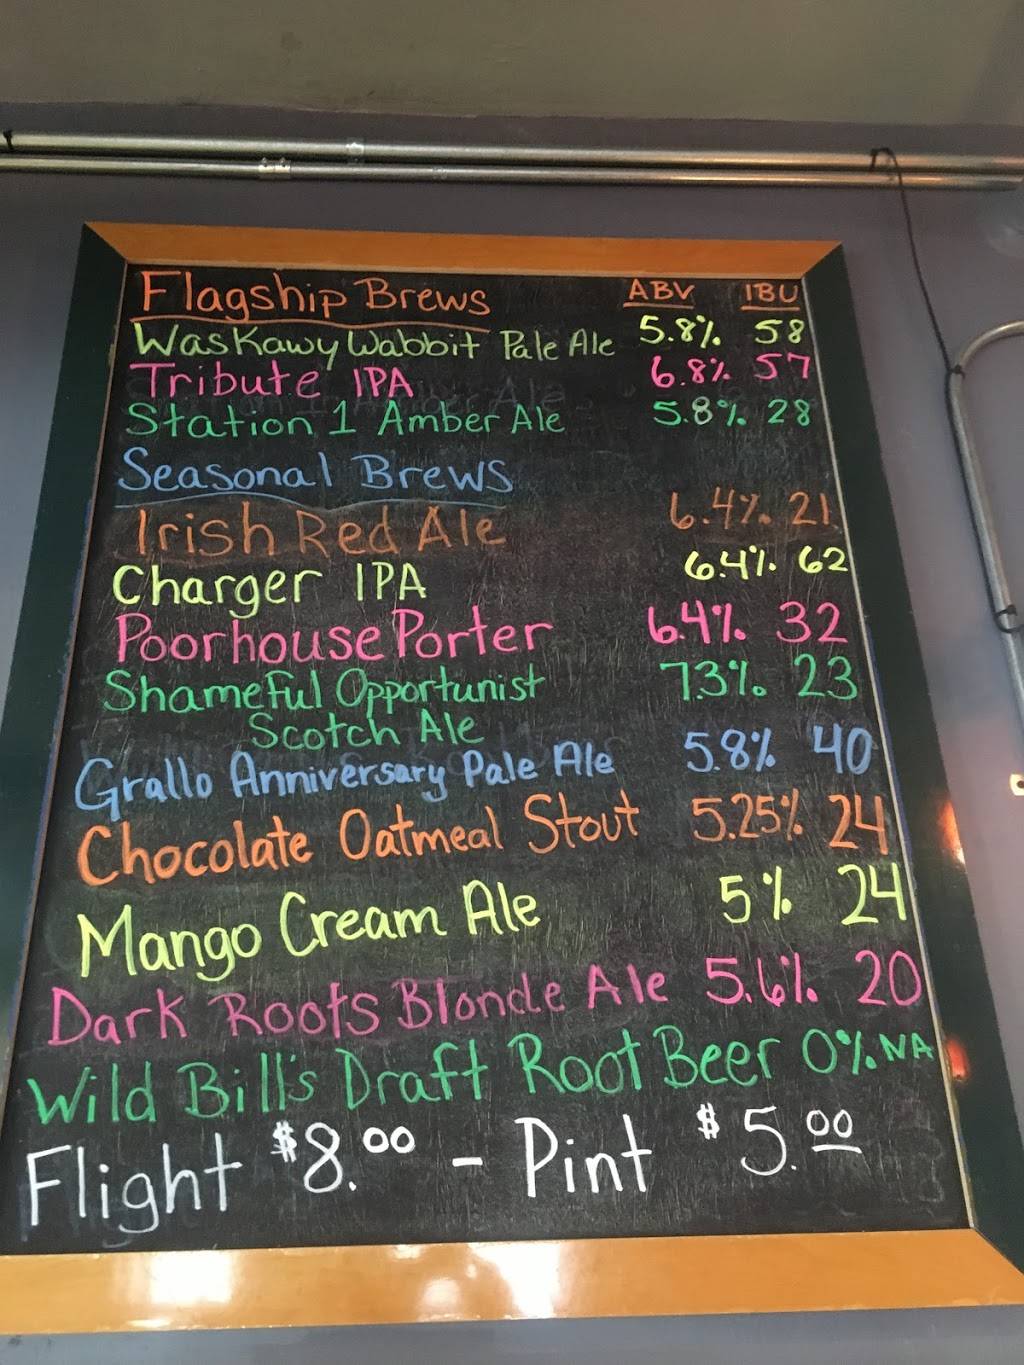 Flagship Brews ABV IBU
Waskawy Wabbit Pale Ale 5.8% 58
Tribute IPA 6.8% 57
Station 1 Amber Ale 5.8% 28
Seasonal Brews
Irish Red Ale 6.4% 21
Charger IPA 6.4% 62
Poorhouse Porter 6.4% 32
Shameful Opportunist 7.3% 23
Scotch Ale
Grallo Anniversary Pale Ale 5.8% 40
Chocolate Oatmeal Stout 5.25% 24
Mango Cream Ale 5% 24
Dark Roots Blonde Ale 5.6% 20
Wild Bill's Draft Root Beer 0% NA
Flight $8.00 - Pint $5.00